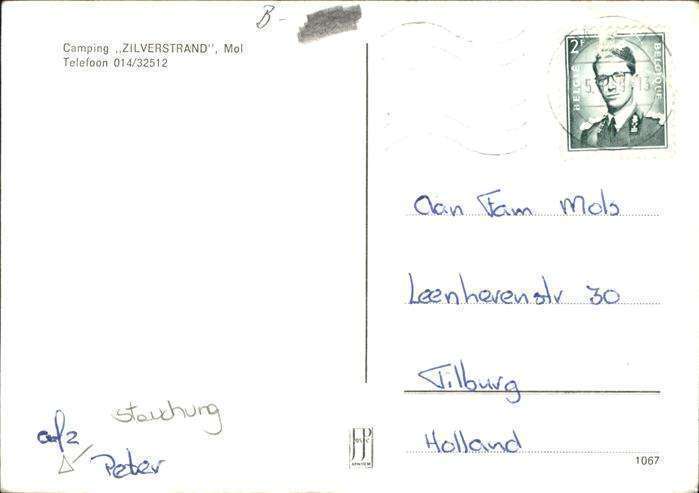 B-
Camping ,,ZILVERSTRAND", Mol
Telefoon 014/32512
2F
BELGIË BELGIQUE
Aan Fam Mols
Leenherenstr 30
Tilburg
Holland
Stauchung
afz
Peter
1067